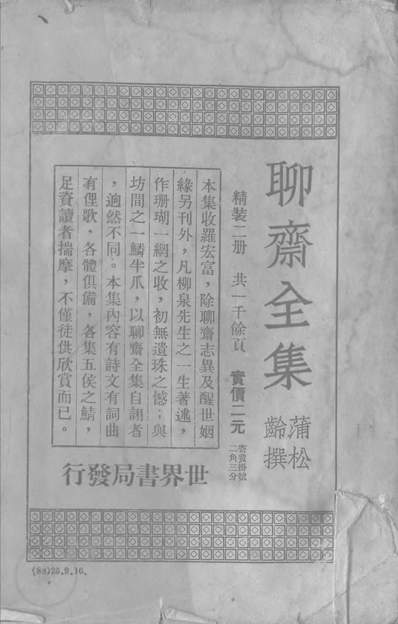 聊齋全集
蒲松
齡撰
精裝二册　共一千餘頁　實價二元
寄費掛號
二角三分
本集收羅宏富，除聊齋志異及醒世姻
緣另刊外，凡柳泉先生之一生著述，
作珊瑚一網之收，初無遺珠之憾；與
坊間之一鱗半爪，以聊齋全集自詡者
，逈然不同。本集內容有詩文有詞曲
有俚歌，各體俱備，各集五侯之鯖，
足資讀者揣摩，不僅徒供欣賞而已。
行發局書界世
(88)25.9.16.